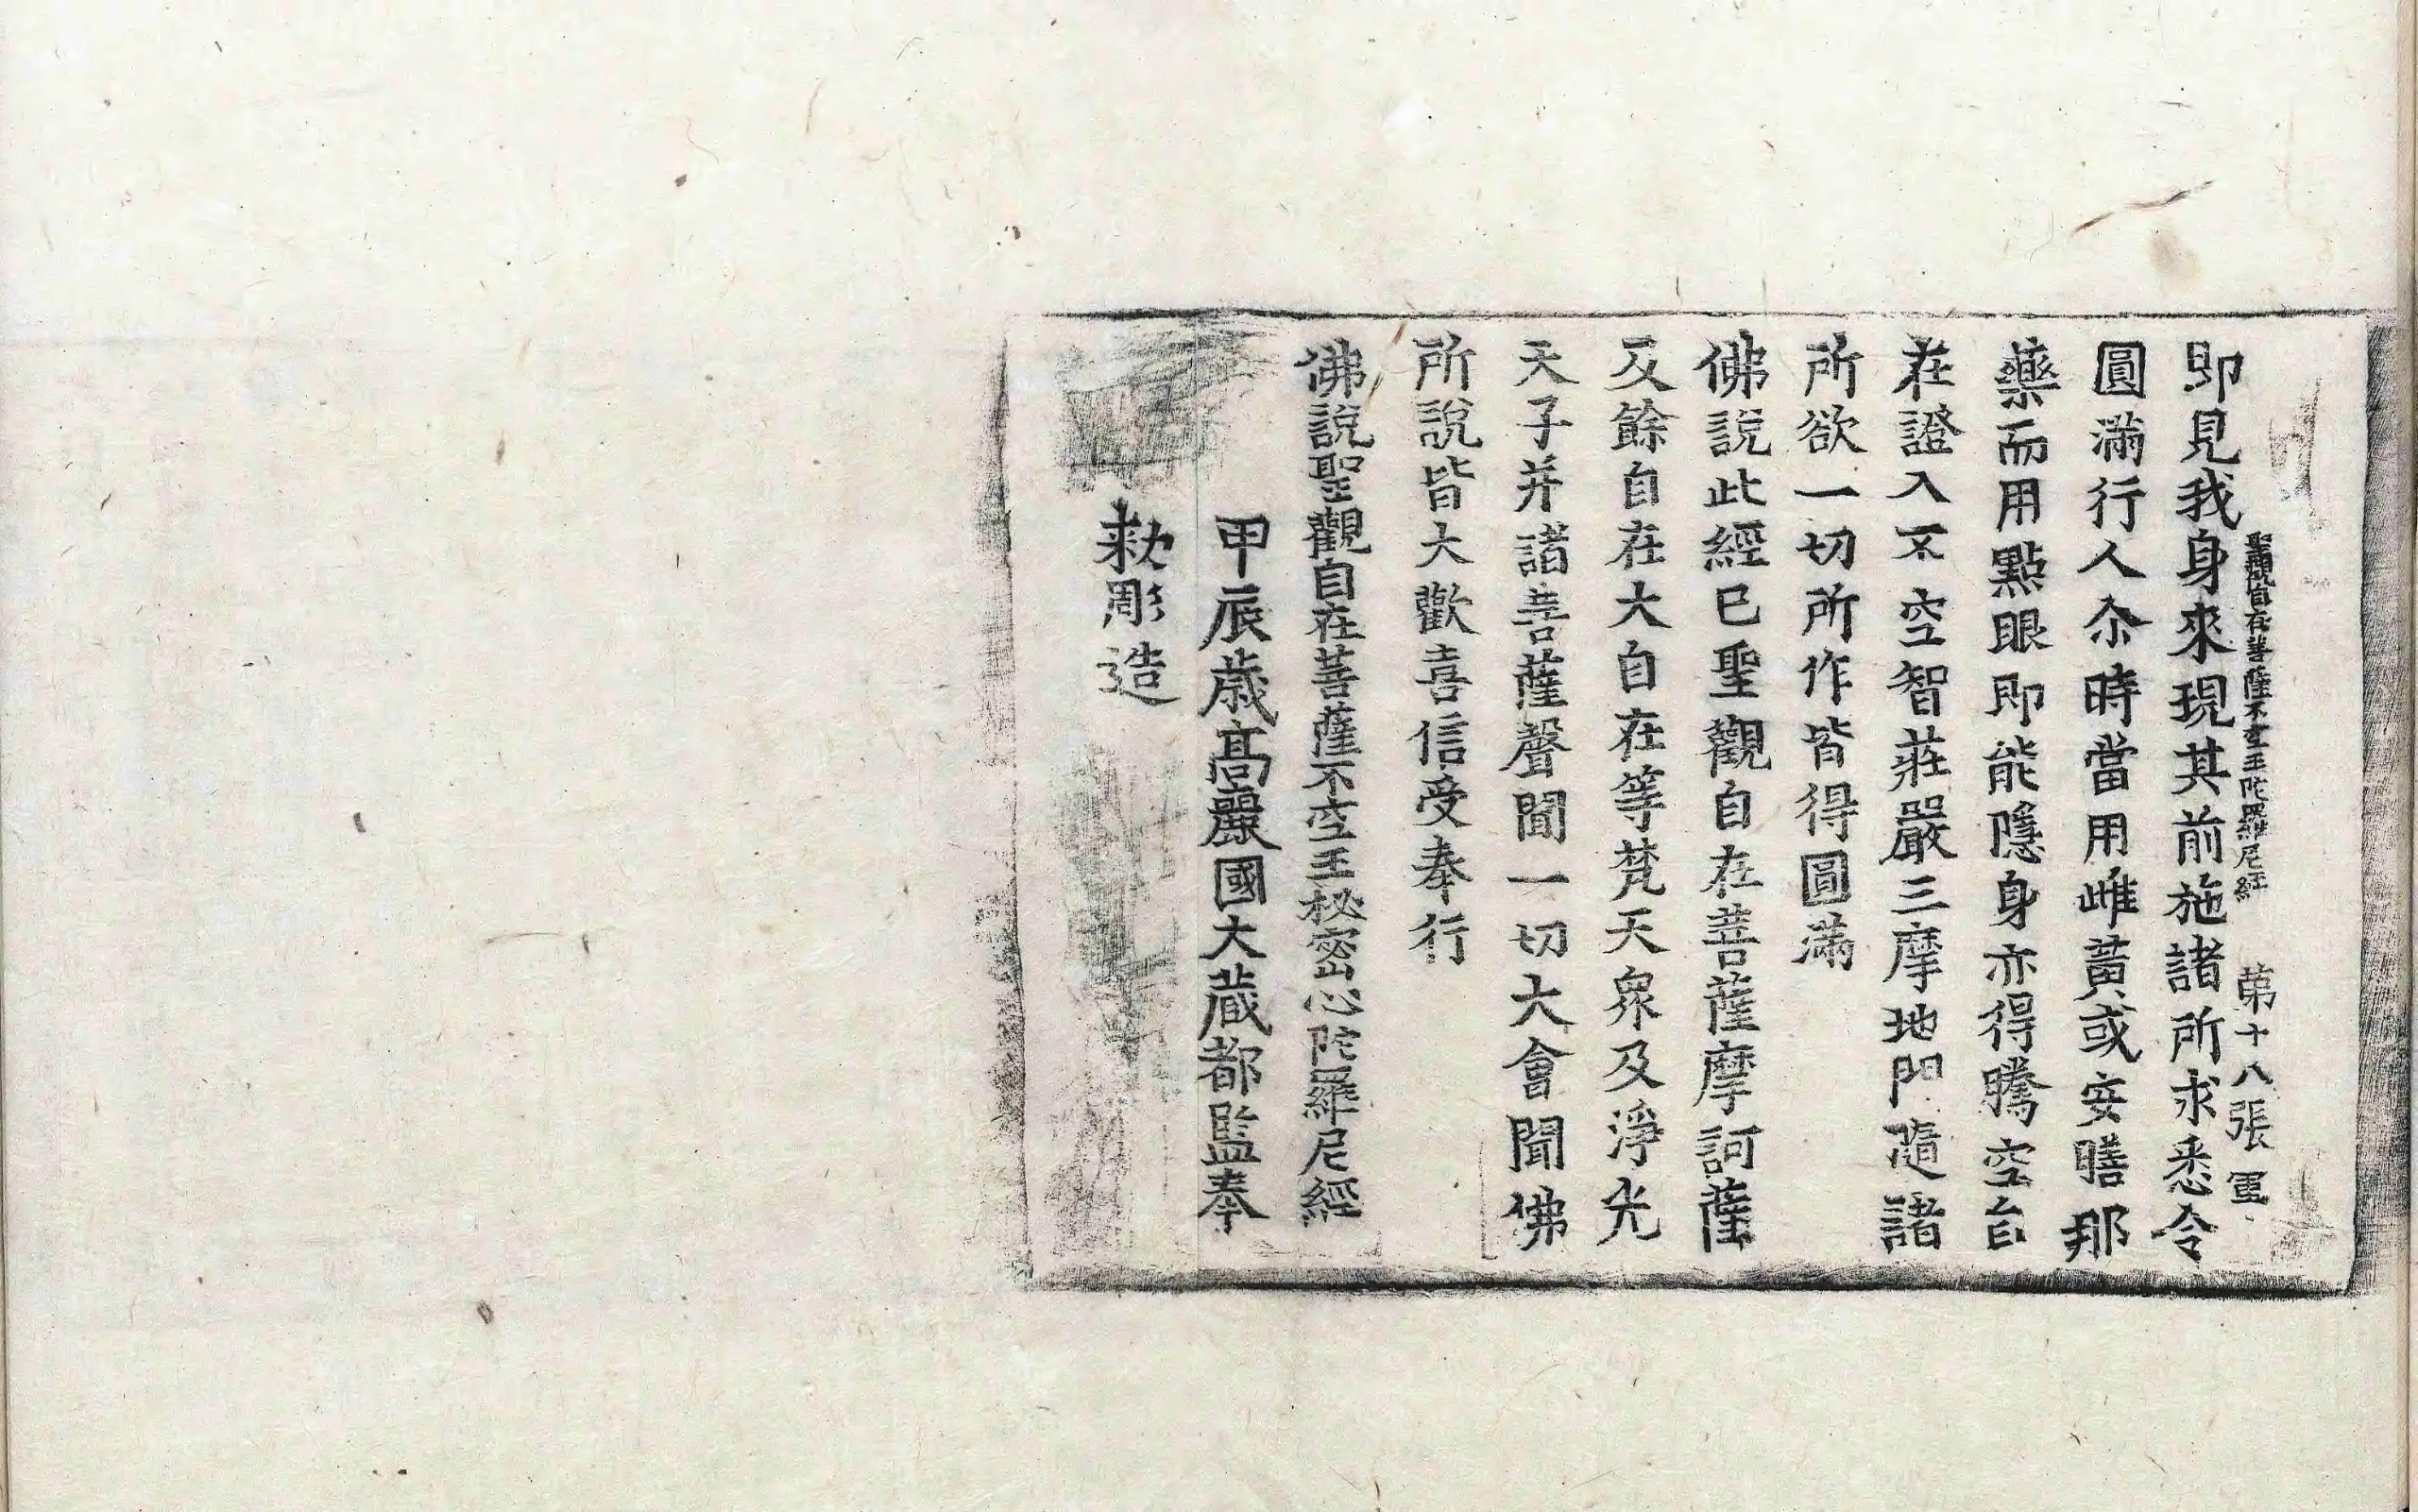 聖觀自在菩薩不空王陀羅尼經 第十八張 軍
即見我身來現其前施諸所求悉令
圓滿行人尒時當用雌黃或安膳那
藥而用點眼即能隱身亦得騰空自
在證入不空智莊嚴三摩地門隨諸
所欲一切所作皆得圓滿
佛說此經已聖觀自在菩薩摩訶薩
及餘自在大自在等梵天衆及淨光
天子并諸菩薩聲聞一切大會聞佛
所說皆大歡喜信受奉行
佛說聖觀自在菩薩不空王秘密心陀羅尼經
甲辰歲高麗國大藏都監奉
勑彫造